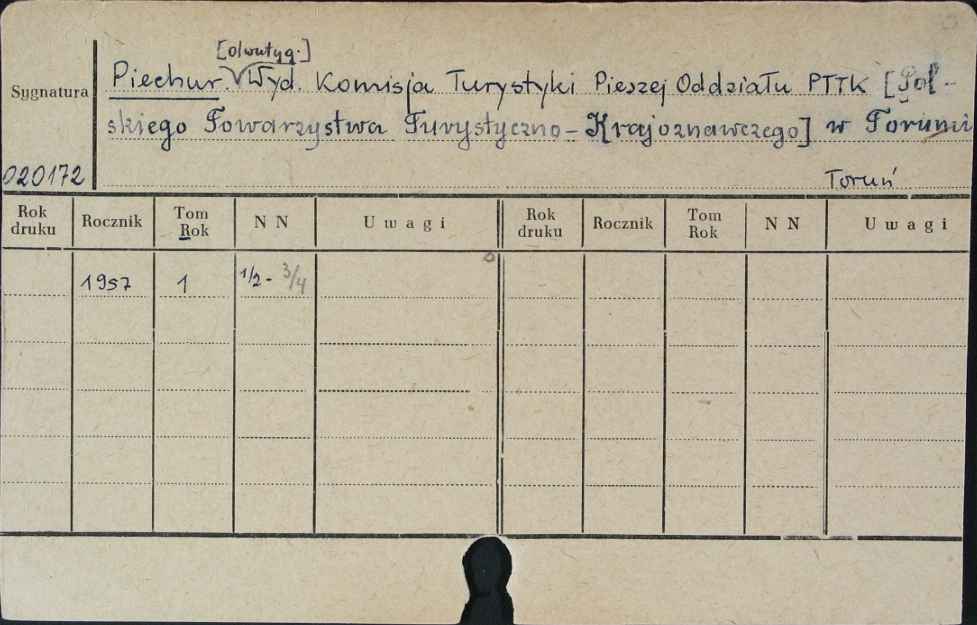 [dwutyg.]
Sygnatura Piechur. Wyd. Komisja Turystyki Pieszej Oddziału PTTK [Pol-
skiego Towarzystwa Turystyczno-Krajoznawczego] w Toruniu
020172 Toruń
Rok druku Rocznik Tom Rok N N Uwagi Rok druku Rocznik Tom Rok N N Uwagi
1957 1 1/2 - 3/4